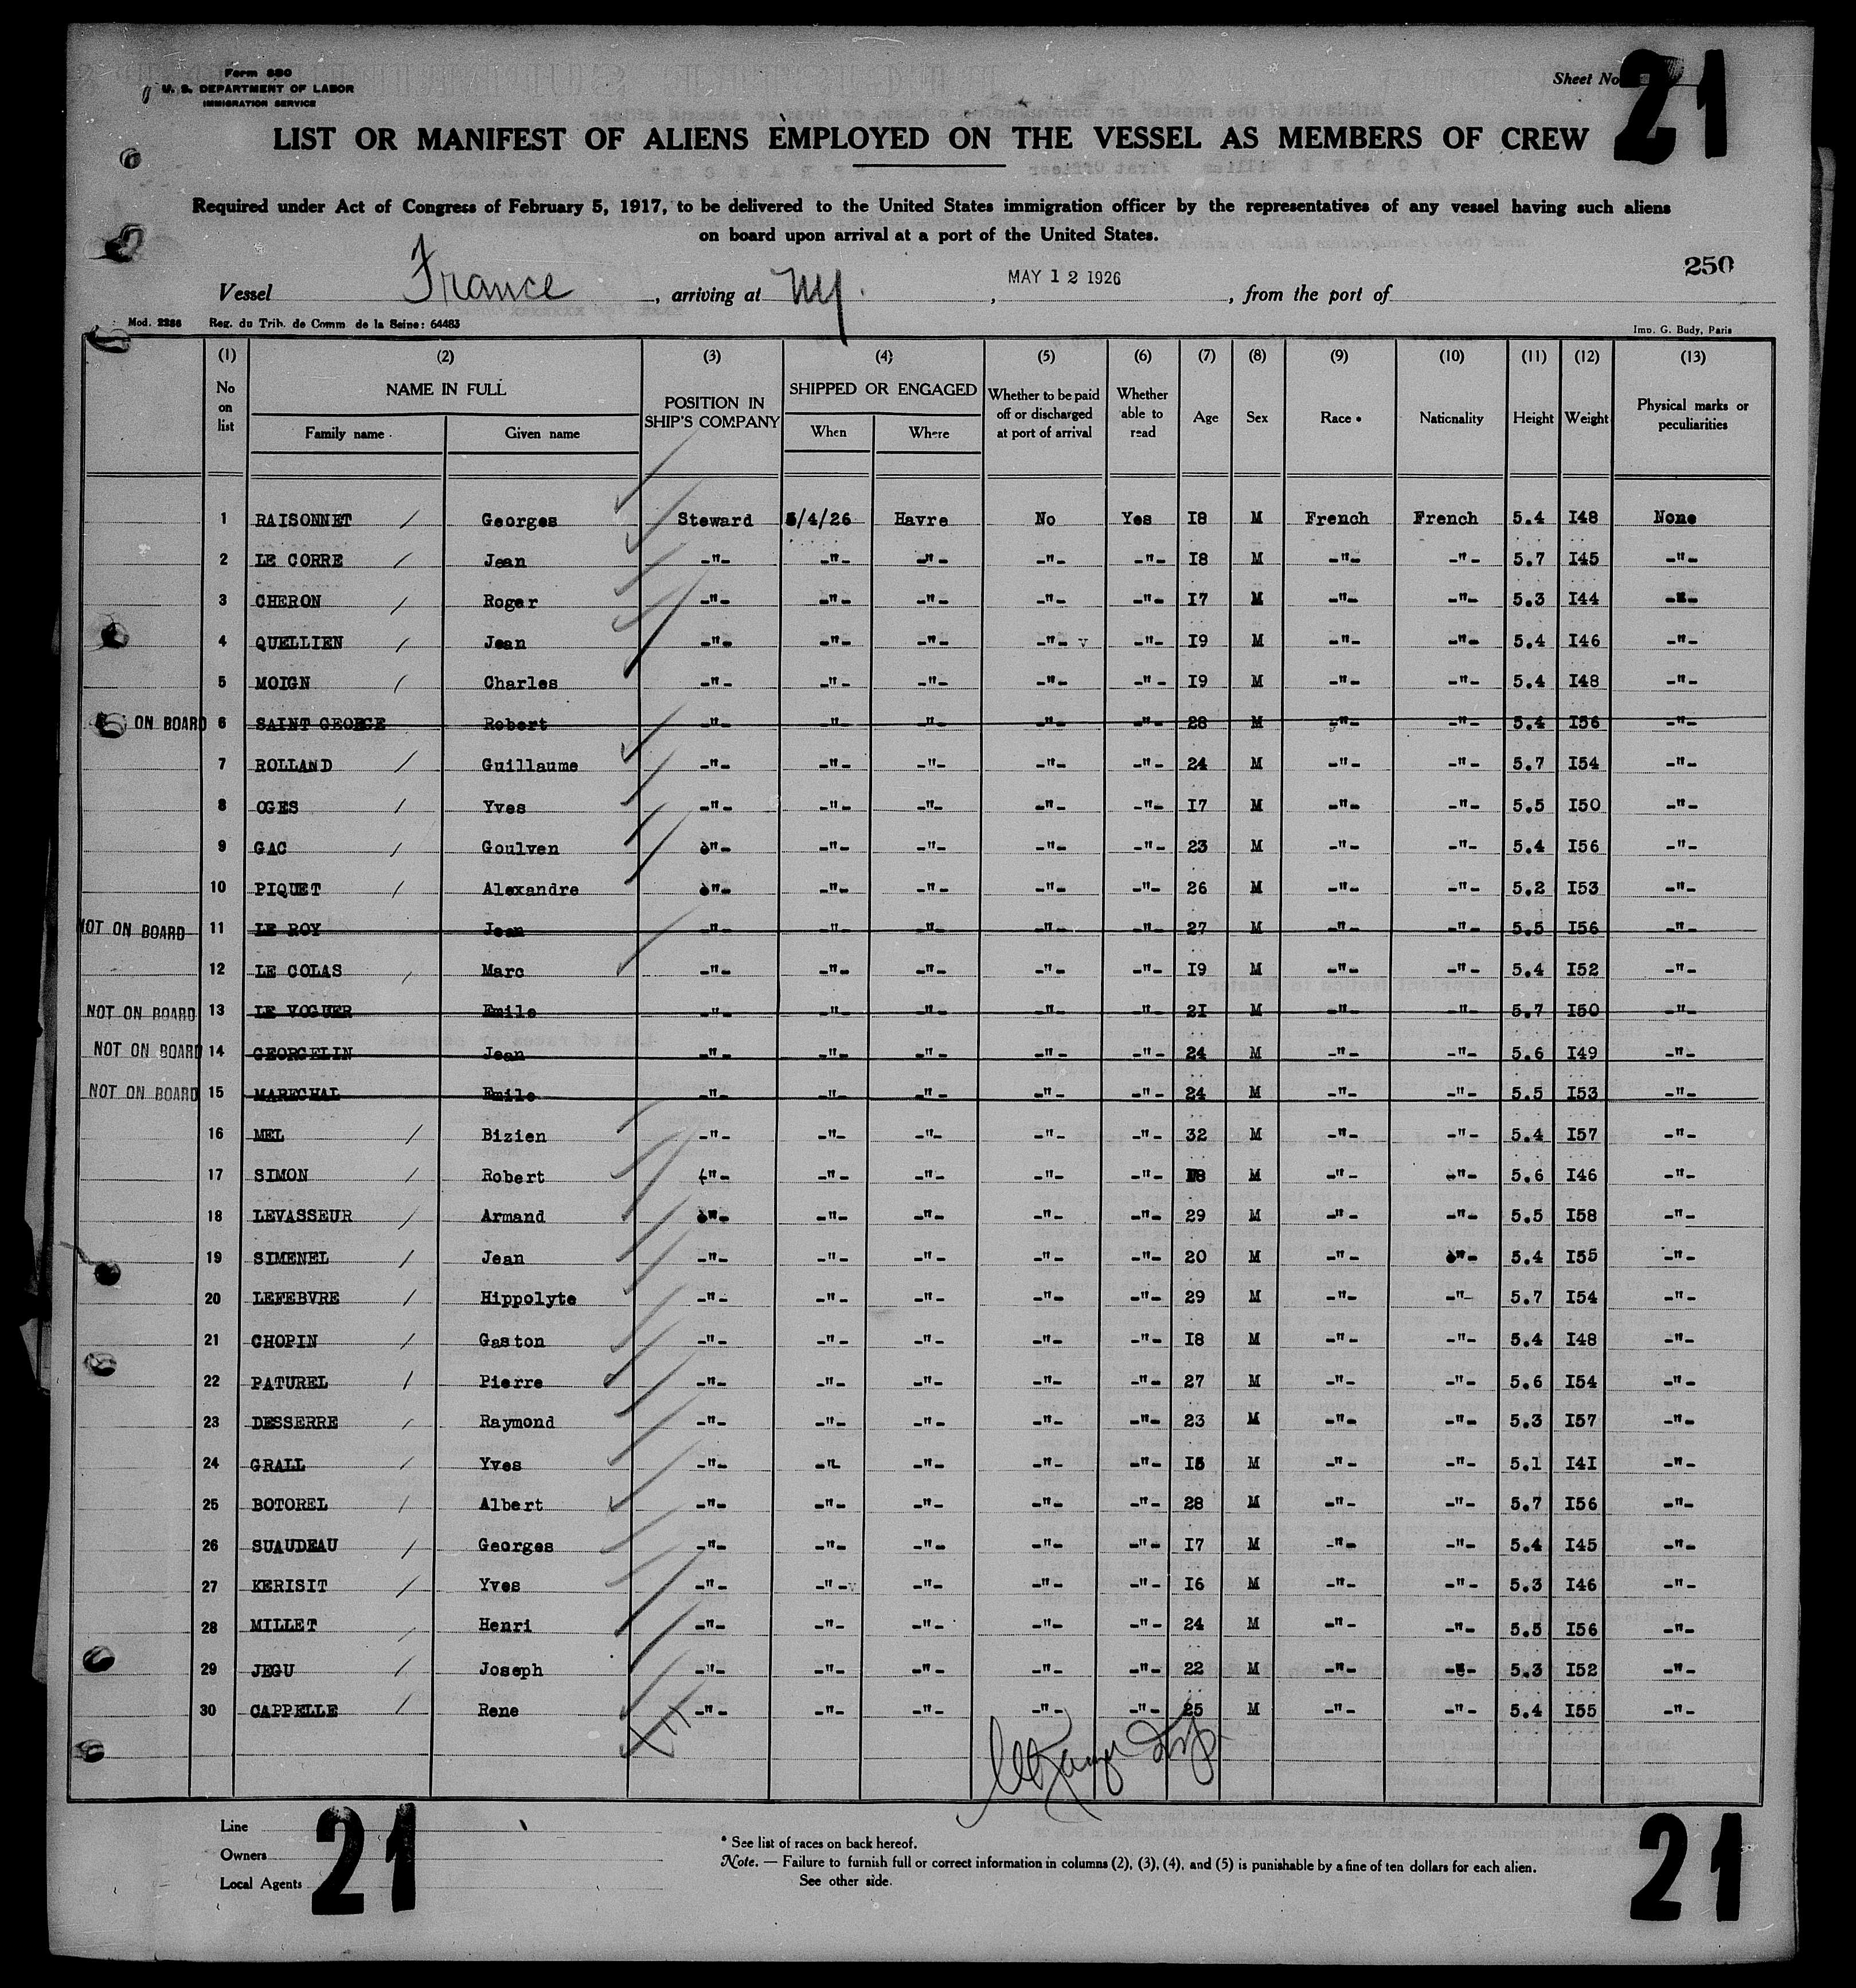 Form 680
U. S. DEPARTMENT OF LABOR
IMMIGRATION SERVICE
Sheet No 21
LIST OR MANIFEST OF ALIENS EMPLOYED ON THE VESSEL AS MEMBERS OF CREW
Required under Act of Congress of February 5, 1917, to be delivered to the United States immigration officer by the representatives of any vessel having such aliens
on board upon arrival at a port of the United States.
250
Vessel France, arriving at NY., MAY 12 1926, from the port of
Mod. 2286 Reg. du Trib. de Comm. de la Seine: 64483 Imp. G. Budy, Paris
(1) (2) (3) (4) (5) (6) (7) (8) (9) (10) (11) (12) (13)
No on list NAME IN FULL POSITION IN SHIP'S COMPANY SHIPPED OR ENGAGED Whether to be paid off or discharged at port of arrival Whether able to read Age Sex Race * Nationality Height Weight Physical marks or peculiarities
Family name Given name When Where
1 RAISONNET / Georges Steward 5/4/26 Havre No Yes I8 M French French 5.4 I48 None
2 LE CORRE / Jean -"- -"- -"- -"- -"- I8 M -"- -"- 5.7 I45 -"-
3 CHERON / Roger -"- -"- -"- -"- -"- I7 M -"- -"- 5.3 I44 -"-
4 QUELLIEN / Jean -"- -"- -"- -"- -"- I9 M -"- -"- 5.4 I46 -"-
5 MOIGN / Charles -"- -"- -"- -"- -"- I9 M -"- -"- 5.4 I48 -"-
ON BOARD 6 SAINT GEORGE Robert -"- -"- -"- -"- -"- 28 M -"- -"- 5.4 I56 -"-
7 ROLLAND / Guillaume -"- -"- -"- -"- -"- 24 M -"- -"- 5.7 I54 -"-
8 OGES / Yves -"- -"- -"- -"- -"- I7 M -"- -"- 5.5 I50 -"-
9 GAC / Goulven -"- -"- -"- -"- -"- 23 M -"- -"- 5.4 I56 -"-
10 PIQUET / Alexandre -"- -"- -"- -"- -"- 26 M -"- -"- 5.2 I53 -"-
NOT ON BOARD 11 LE ROY Jean -"- -"- -"- -"- -"- 27 M -"- -"- 5.5 I56 -"-
12 LE COLAS / Marc -"- -"- -"- -"- -"- I9 M -"- -"- 5.4 I52 -"-
NOT ON BOARD 13 LE VOGUER Emile -"- -"- -"- -"- -"- 2I M -"- -"- 5.7 I50 -"-
NOT ON BOARD 14 GEORGELIN Jean -"- -"- -"- -"- -"- 24 M -"- -"- 5.6 I49 -"-
NOT ON BOARD 15 MARECHAL Emile -"- -"- -"- -"- -"- 24 M -"- -"- 5.5 I53 -"-
16 MEL / Bizien -"- -"- -"- -"- -"- 32 M -"- -"- 5.4 I57 -"-
17 SIMON / Robert -"- -"- -"- -"- -"- I8 M -"- -"- 5.6 I46 -"-
18 LEVASSEUR / Armand -"- -"- -"- -"- -"- 29 M -"- -"- 5.5 I58 -"-
19 SIMENEL / Jean -"- -"- -"- -"- -"- 20 M -"- -"- 5.4 I55 -"-
20 LEFEBVRE / Hippolyte -"- -"- -"- -"- -"- 29 M -"- -"- 5.7 I54 -"-
21 CHOPIN / Gaston -"- -"- -"- -"- -"- I8 M -"- -"- 5.4 I48 -"-
22 PATUREL / Pierre -"- -"- -"- -"- -"- 27 M -"- -"- 5.6 I54 -"-
23 DESSERRE / Raymond -"- -"- -"- -"- -"- 23 M -"- -"- 5.3 I57 -"-
24 GRALL / Yves -"- -"- -"- -"- -"- M -"- -"- 5.1 I4I -"-
25 BOTOREL / Albert -"- -"- -"- -"- -"- 28 M -"- -"- 5.7 I56 -"-
26 SUAUDEAU / Georges -"- -"- -"- -"- -"- I7 M -"- -"- 5.4 I45 -"-
27 KERISIT / Yves -"- -"- -"- -"- -"- I6 M -"- -"- 5.3 I46 -"-
28 MILLET / Henri -"- -"- -"- -"- -"- 24 M -"- -"- 5.5 I56 -"-
29 JEGU / Joseph -"- -"- -"- -"- -"- 22 M -"- -"- 5.3 I52 -"-
30 CAPPELLE / Rene -"- -"- -"- -"- -"- 25 M -"- -"- 5.4 I55 -"-
Line
Owners
Local Agents
21
* See list of races on back hereof.
Note. — Failure to furnish full or correct information in columns (2), (3), (4), and (5) is punishable by a fine of ten dollars for each alien.
See other side.
21